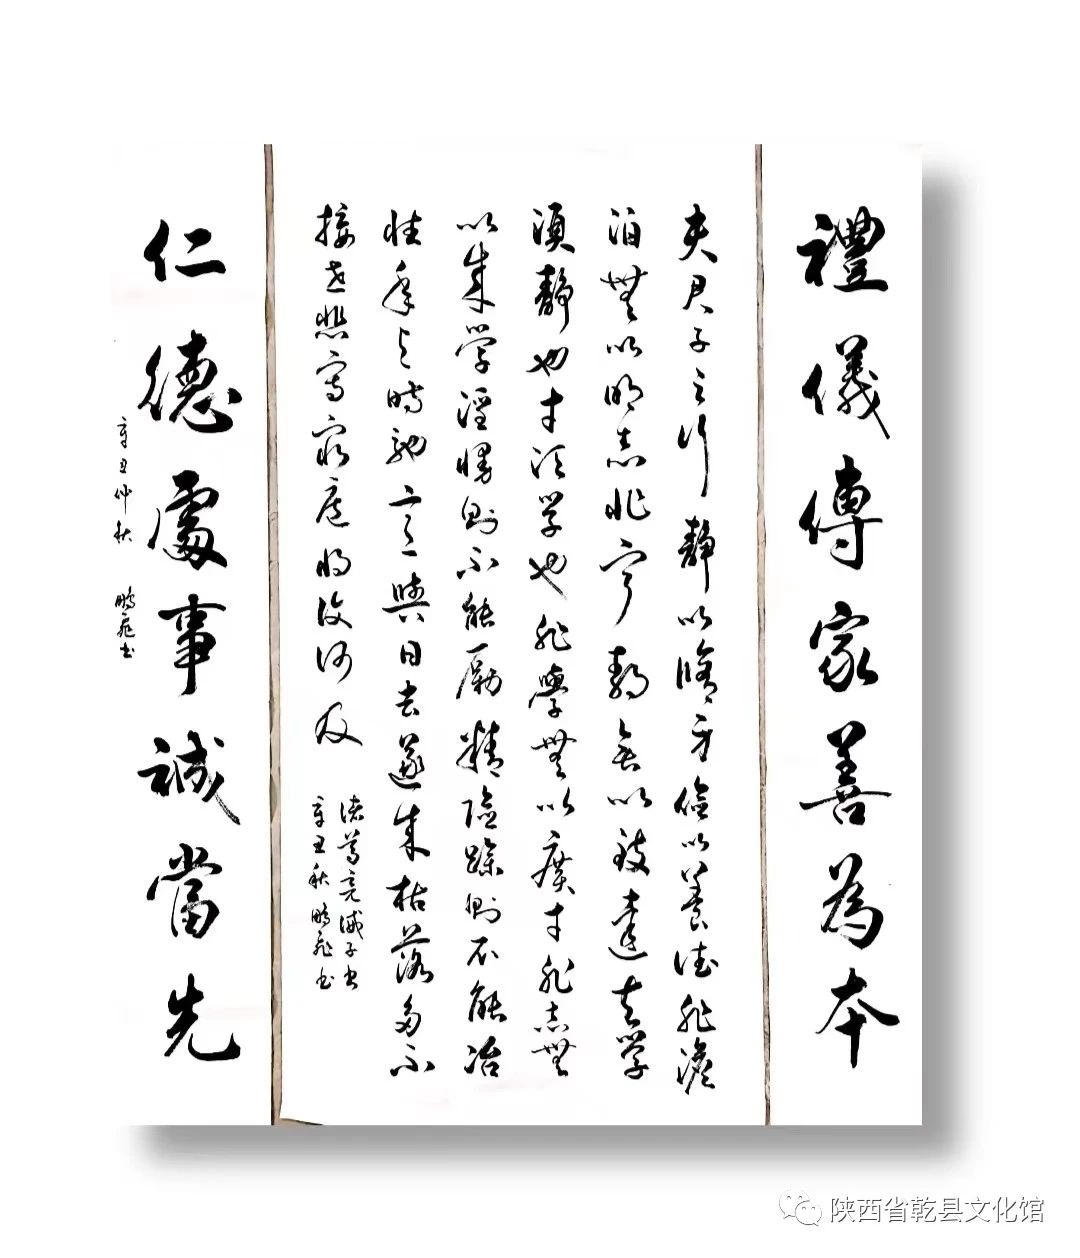 禮儀傳家善為本
夫君子之行靜以脩身儉以養德非澹
泊無以明志非寧靜無以致遠夫學
須靜也才須學也非學無以廣才非志無
以成學淫慢則不能勵精險躁則不能冶
性年与時馳意與日去遂成枯落多不
接世悲守窮廬將復何及
諸葛亮誡子書
辛丑秋 鵬飛书
仁德處事誠當先
辛丑仲秋 鵬飛书
陕西省乾县文化馆